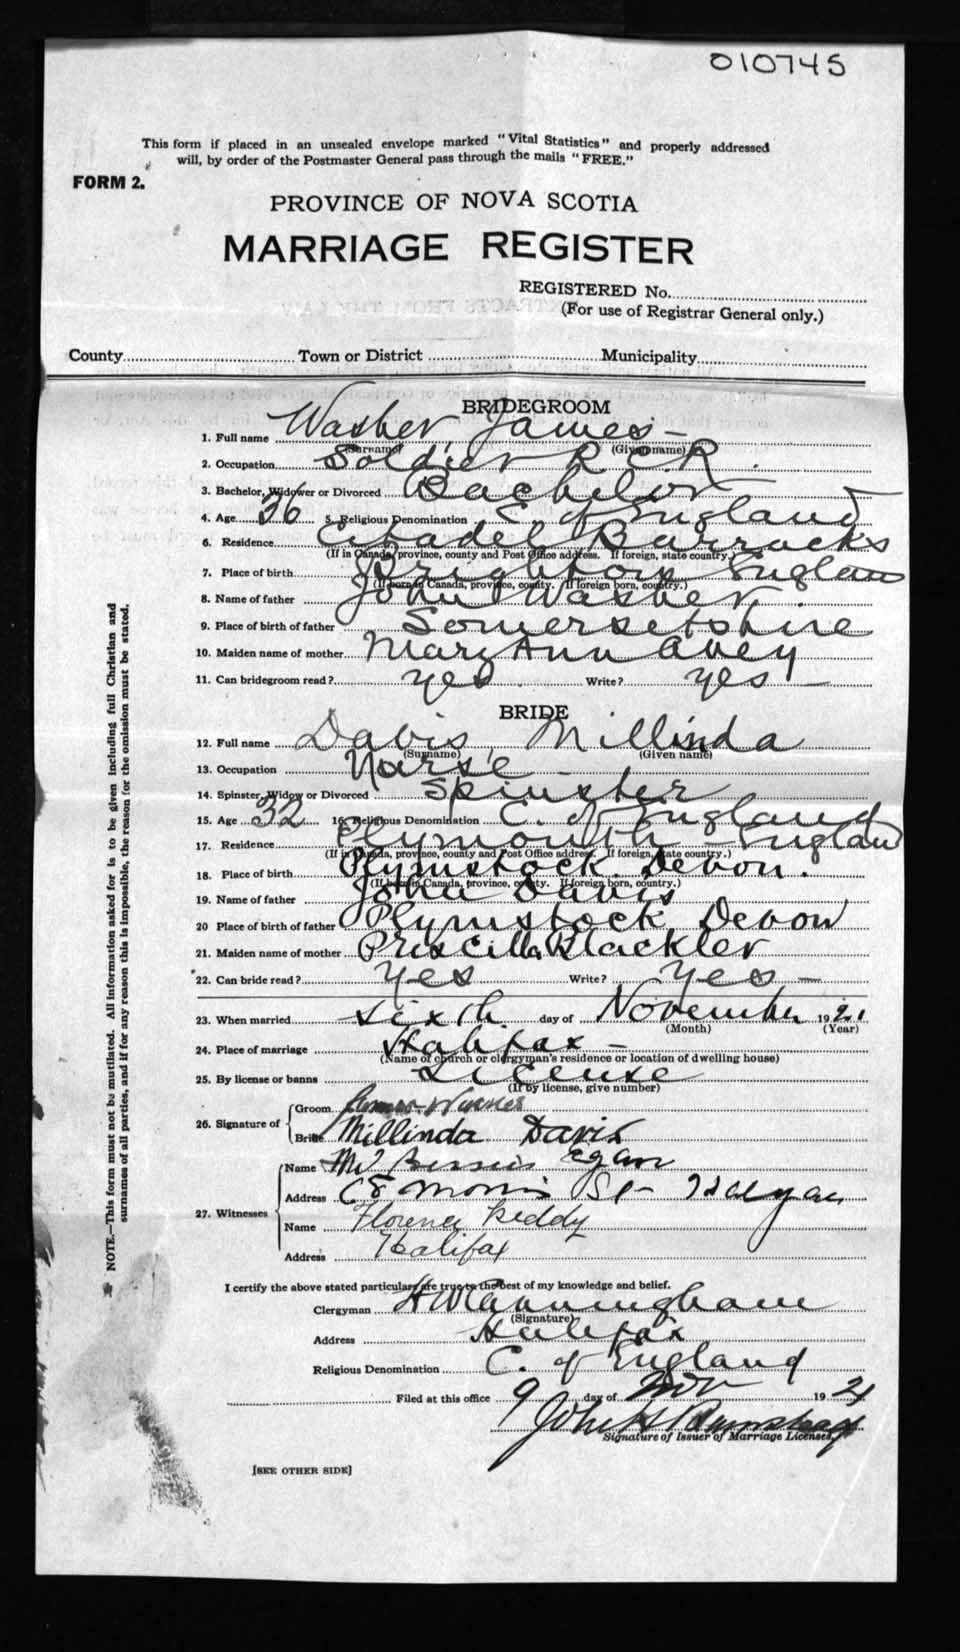 010745
This form if placed in an unsealed envelope marked "Vital Statistics" and properly addressed
will, by order of the Postmaster General pass through the mails "FREE."
FORM 2.
PROVINCE OF NOVA SCOTIA
MARRIAGE REGISTER
REGISTERED No.
(For use of Registrar General only.)
County Town or District Municipality
BRIDEGROOM
1. Full name Washer James
(Surname) (Given name)
2. Occupation Soldier R.C.R.
3. Bachelor, Widower or Divorced Bachelor
4. Age 36 5. Religious Denomination C. of England
6. Residence Citadel Barracks
(If in Canada, province, county and Post Office address. If foreign, state country.)
7. Place of birth Brighton England
(If born in Canada, province, county. If foreign born, country.)
8. Name of father John Washer
9. Place of birth of father Somersetshire
10. Maiden name of mother Mary Ann Avey
11. Can bridegroom read? yes Write? yes
BRIDE
12. Full name Davis, Millinda
(Surname) (Given name)
13. Occupation Nurse
14. Spinster, Widow or Divorced Spinster
15. Age 32 16. Religious Denomination C. of England
17. Residence Plymouth England
(If in Canada, province, county and Post Office address. If foreign, state country.)
18. Place of birth Plymstock. Devon.
(If born in Canada, province, county. If foreign born, country.)
19. Name of father John Davis
20 Place of birth of father Plymstock Devon
21. Maiden name of mother Priscilla Blackler
22. Can bride read? Yes Write? Yes
23. When married sixth day of November 1921
(Month) (Year)
24. Place of marriage Halifax
(Name of church or clergyman's residence or location of dwelling house)
25. By license or banns License
(If by license, give number)
26. Signature of Groom James
Bride Millinda Davis
27. Witnesses Name Egan
Address Morris St
Name Florence Reddy
Address Halifax
I certify the above stated particulars are true to the best of my knowledge and belief.
Clergyman H W Cunningham
(Signature)
Address Halifax
Religious Denomination C. of England
Filed at this office 9 day of Nov 1921
John H
Signature of Issuer of Marriage Licenses.
[SEE OTHER SIDE]
NOTE.—This form must not be mutilated. All information asked for is to be given including full Christian and
surnames of all parties, and if for any reason this is impossible, the reason for the omission must be stated.